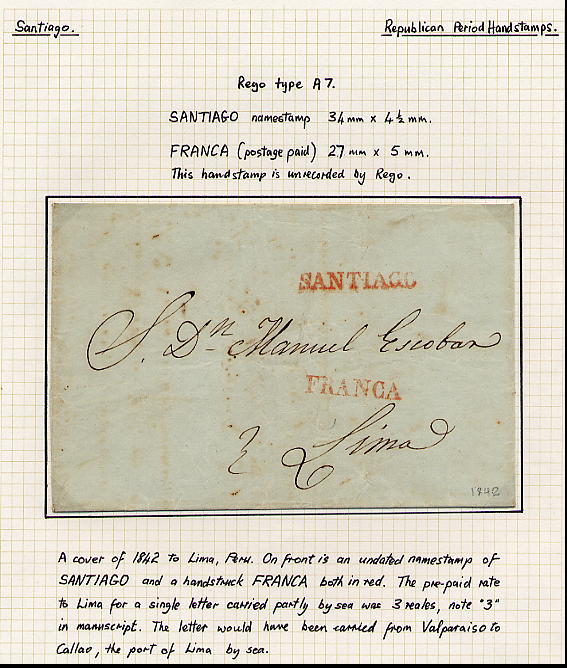 Santiago.
Republican Period Handstamps.
Rego type A7.
SANTIAGO namestamp 34 mm x 4½ mm.
FRANCA (postage paid) 27 mm x 5 mm.
This handstamp is unrecorded by Rego.
SANTIAGO
S. Dn Manuel Escobar
FRANCA
3 Lima
1842
A cover of 1842 to Lima, Peru. On front is an undated namestamp of
SANTIAGO and a handstruck FRANCA both in red. The pre-paid rate
to Lima for a single letter carried partly by sea was 3 reales, note "3"
in manuscript. The letter would have been carried from Valparaiso to
Callao, the port of Lima by sea.